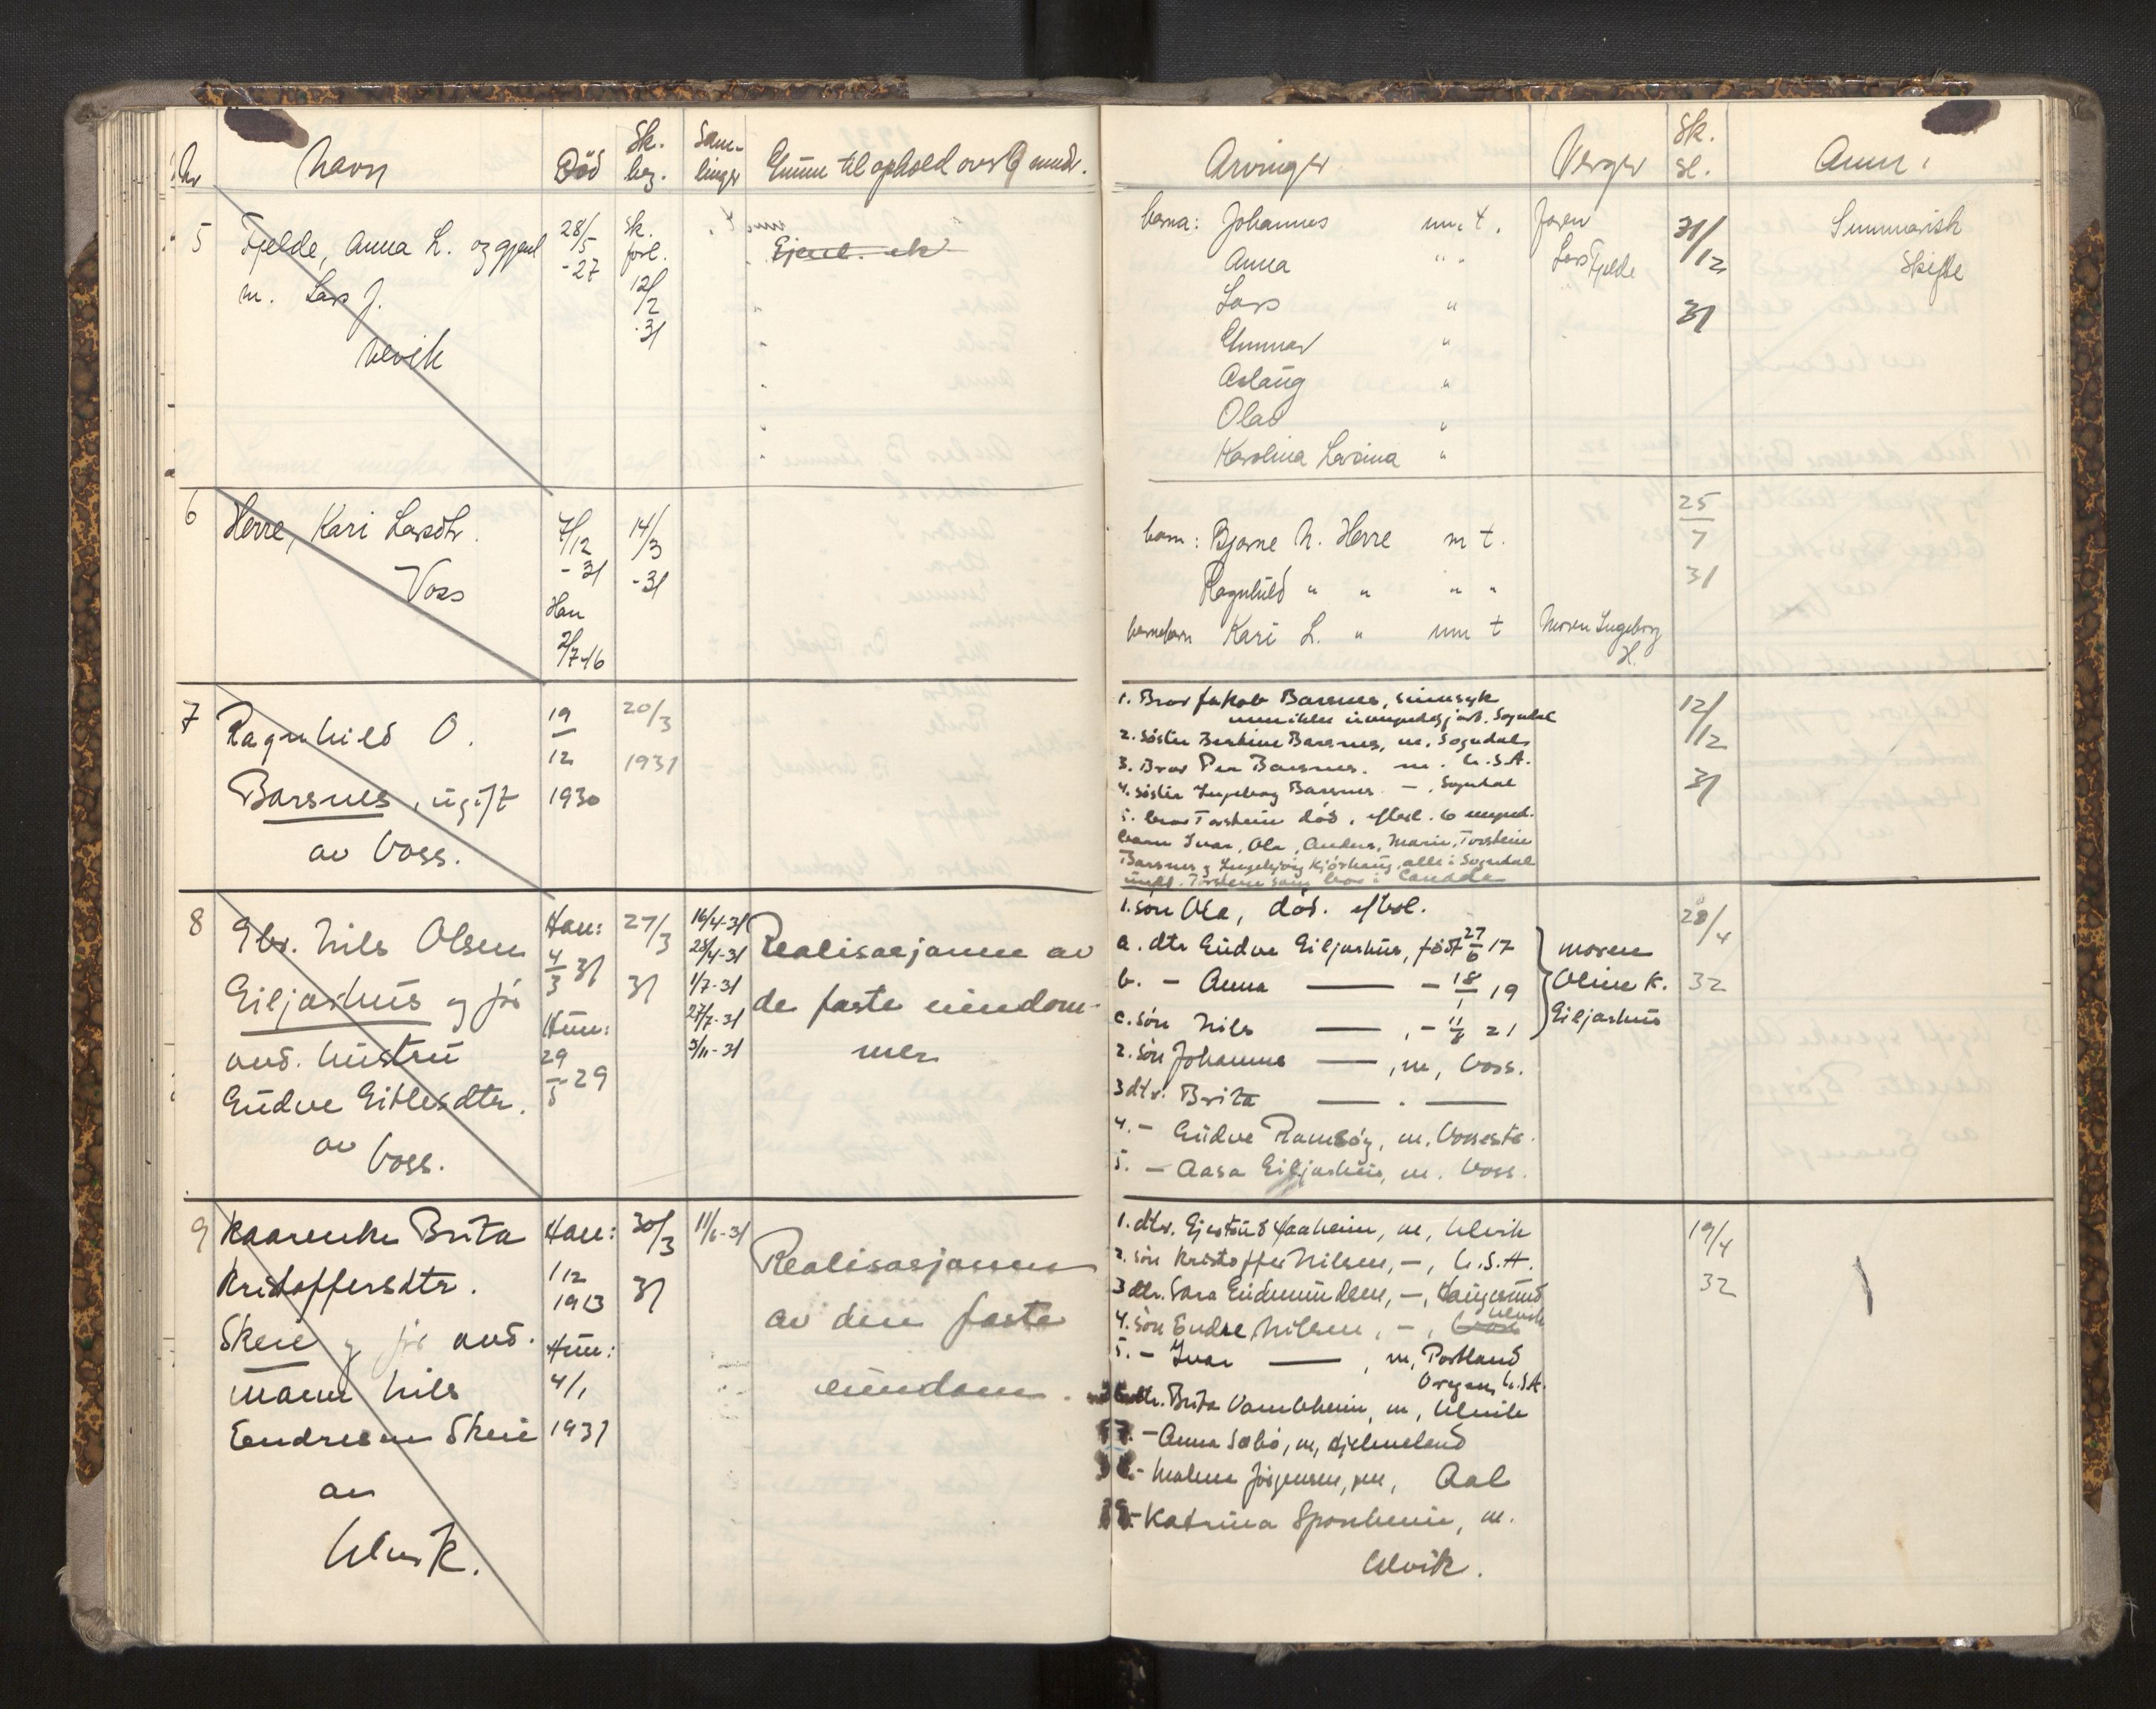 Nr Navn Död Sk. beg. Sam-linger Emne til ophold over 9 mndr.
5 Fjelde, Anna L. og gjenl
m. Lars J.
Ulvik
28/5 -27
Sk. forl.
12/2 -31
6 Herre, Kari Larsdtr.
Voss
7/12 -31
Han
2/7-16
14/3 -31
7 Ragnhild O.
Barsnes, ugift
av Voss.
19/12 1930
20/3 1931
8 Gbr. Nils Olsen
Eiljarhus og før
avd. hustru
Gudve Eitlesdtr.
av Voss.
Han:
4/3 31
Hun:
29/5 29
27/3 31
16/4-31
28/4-31
1/7-31
27/7-31
3/11-31
Realisasjonen av
de faste eiendom-
mer
9 Kaarenke Brita
Kristoffersdtr.
Skeie og før avd.
mann Nils
Endresen Skeie
av
Ulvik.
Han:
1/12
1913
Hun:
4/1
1931
30/3 31
11/6-31
Realisasjonen
av den faste
eiendom.
Arvinger Verger Sk. sl. Anm.
barna: Johannes um. t.
Anna " "
Lars "
Gunnar "
Aslaug "
Olav "
Karolina Lovina "
Faren
Lars Fjelde
31/12 31
Summarisk
Skifte
barn: Bjarne N. Herre m t.
Ragnhild " " " "
barnebarn Kari L. " um t
Moren Ingeborg
H.
25/7 31
1. Bror Jakob Barsnes, sinnsyk
men ikke umyndiggjort. Sogndal
2. Söster Bertine Barsnes, m. Sogndal
3. Bror Per Barsnes. m. U.S.A.
4. Söster Ingeborg Barsnes - , Sogndal
5. bror Torstein död, efterl. 6 mynd.
barn Ivar, Ola, Anders, Marie, Torstein
Barsnes og Ingebjörg Kjörhaug, alle i Sogndal
unt. Torstein som bor i Canada
12/12 31
1. sön Ola, död. efterl.
a. dtr Gudve Eiljarhus, född 27/6 17
b. - Anna — - 18/1 19
c. sön Nils — , - 11/8 21
moren
Oline K.
Eiljarhus
2. sön Johannes — , m, Voss.
3 dtr. Brita — . —
4. - Gudve Ramsöy, m.
5. - Aasa Eiljarhus, m. Voss.
28/4 32
1. dtr. Gjertrud Haaheim, m, Ulvik
2. sön Kristoffer Nilsen, - , U.S.A.
3 dtr. Sara Gudmundsen, - , Haugesund
4. sön Endre Nilsen, - , Ulvik
5. - Ivar — , m, Portland
Oregon, U.S.A.
6 dtr. Brita Vambheim, m, Ulvik
7. - Anna Sæbö, m, Hjelmeland
8. - Malene Jörgensen, m, Aal
9. - Katrina Sponheim, m.
Ulvik.
19/4 32